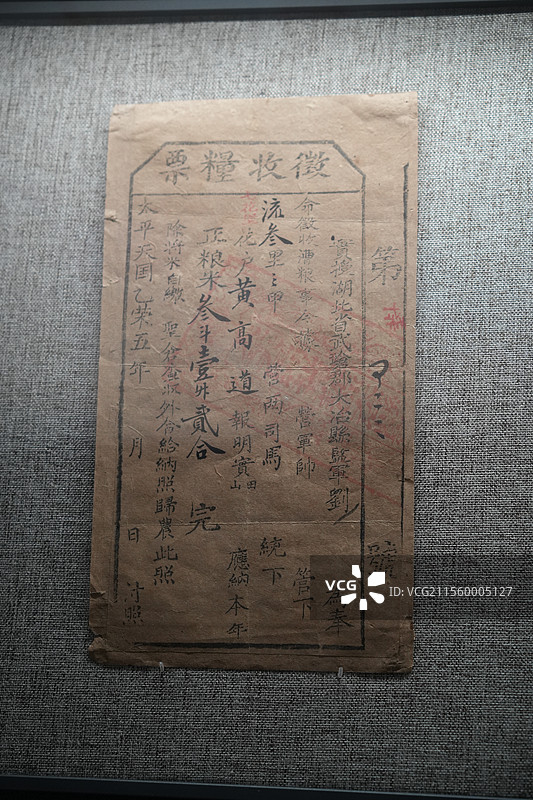 徵收糧票
第
號
實授湖北省武昌郡大冶縣監軍劉 為奉
命徵收漕粮事今據 營軍帥 管下
流叁里三甲 營兩司馬 統下
花户黄高道報明實田山應納本年
正粮米叁斗壹升貳合 完
除將米自繳 聖倉查收外合給納照歸農此照
太平天囯乙荣五年 月 日 付照
VCG
VCG211560005127